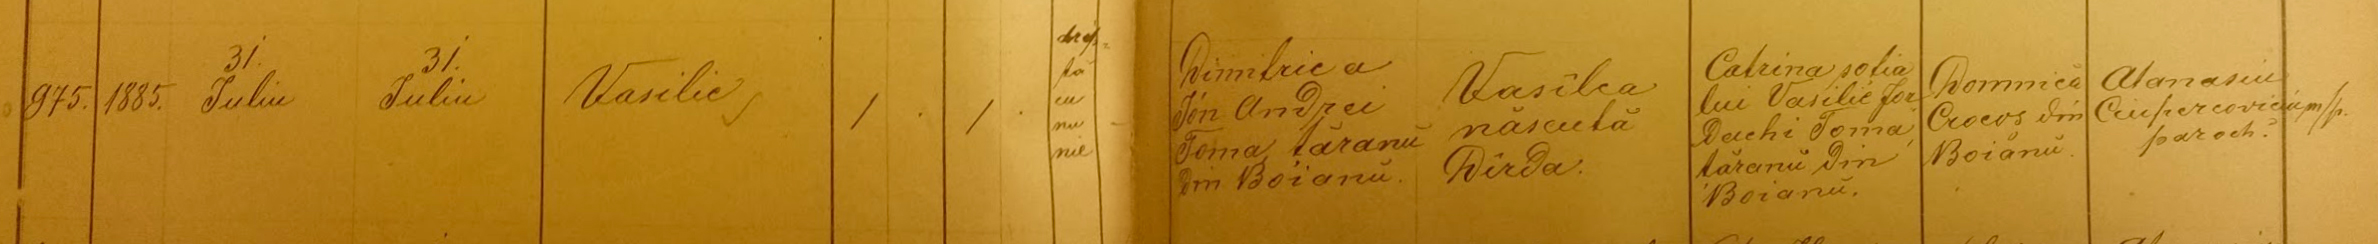 975. 1885.
31. Iuliu
31. Iuliu
Vasilie
/ . / .
drép-
tă
cu
nu
nie
Dimitrie a
Ión Andrei
Toma, tăranŭ
din Boianŭ.
Vasilca
născută
Dîrda.
Catrina soția
lui Vasilie Jor
Dachi Toma
tăranŭ din
Boianŭ.
Domnica
Crocos din
Boianŭ.
Atanasiu
Ciupercoviciu m/p.
paroch.